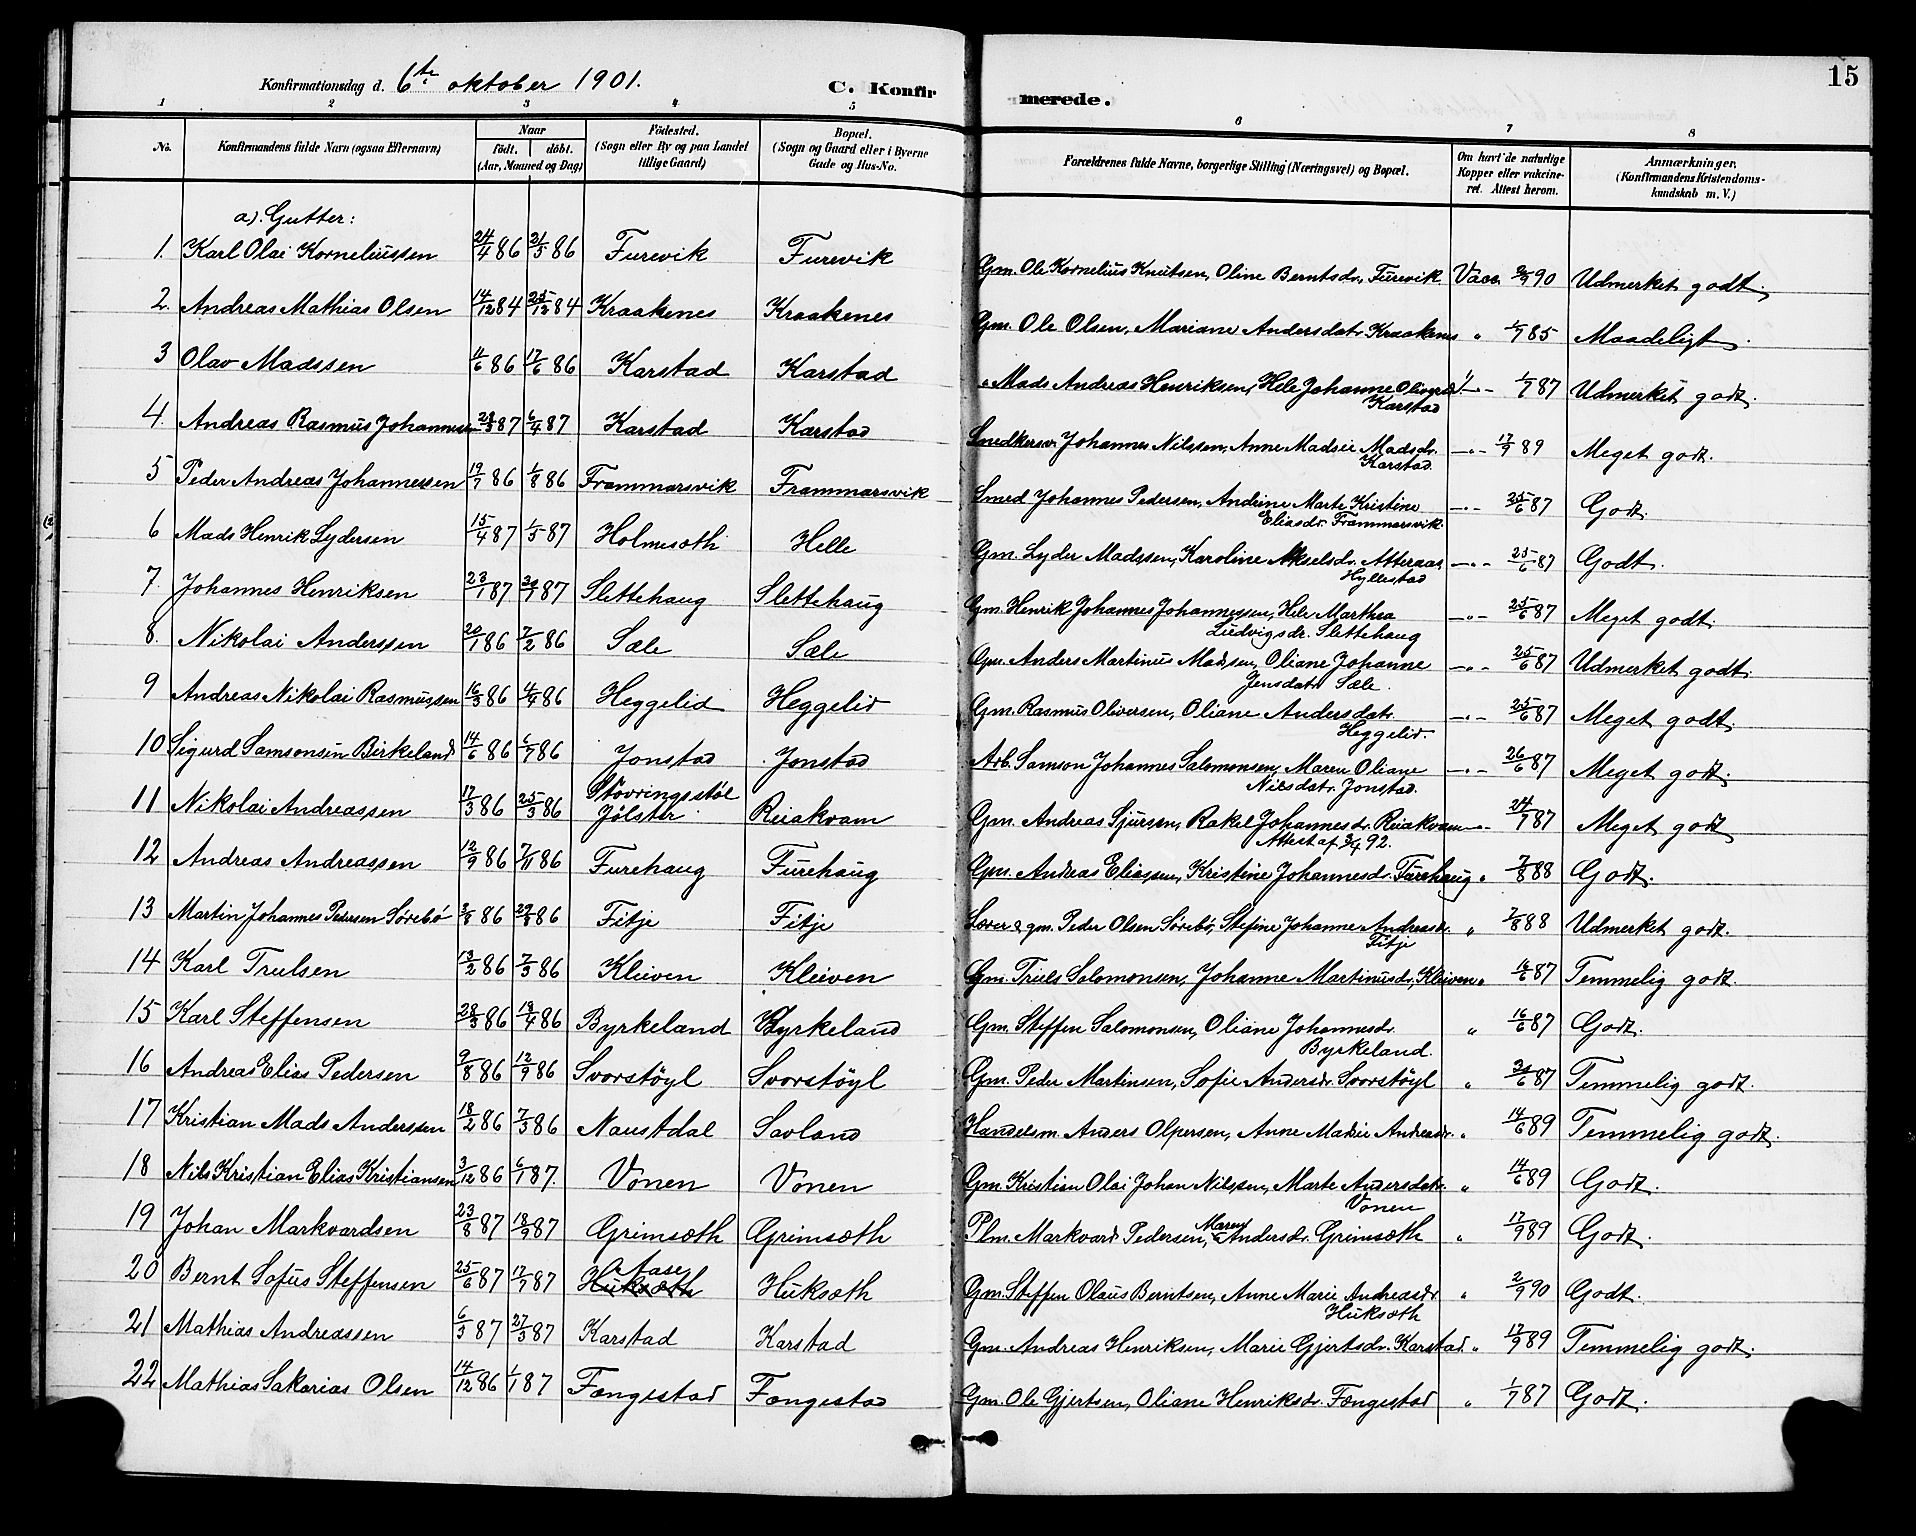 15
Konfirmationsdag d. 6te oktober 1901.
C. Konfirmerede.
1 2 3 4 5 6 7 8
No. Konfirmandens fulde Navn (ogsaa Efternavn) Naar födt. döbt. (Aar, Maaned og Dag) Födested. (Sogn eller By og paa Landet tillige Gaard) Bopæl. (Sogn og Gaard eller i Byerne Gade og Hus-No. Forældrenes fulde Navne, borgerlige Stilling (Næringsvei) og Bopæl. Om havt de naturlige Kopper eller vakcineret. Attest herom. Anmærkninger. (Konfirmandens Kristendomskundskab m. V.)
a). Gutter:
1. Karl Olai Korneliussen 24/4 86 2/5 86 Furevik Furevik Gm. Ole Kornelius Knutsen, Oline Berntsdr. Furevik Vacc. 2/9 90 Udmerket godt.
2. Andreas Mathias Olsen 14/12 84 25/12 84 Kraakenes Kraakenes Gm. Ole Olsen, Mariane Andersdatr. Kraakenes " 1/7 85 Maadeligt.
3 Olav Madssen 11/6 86 17/6 86 Karstad Karstad " Mads Andreas Henriksen, Hele Johanne Oliversdr. Karstad " 1/7 87 Udmerket godt.
4. Andreas Rasmus Johannesen 28/3 87 6/4 87 Karstad Karstad Smedkersv. Johannes Nilssen, Anne Madsie Madsdr. Karstad — " — 17/9 89 Meget godt.
5 Peder Andreas Johannessen 19/7 86 1/8 86 Frammarsvik Frammarsvik Smed Johannes Pedersen, Andrine Marte Kristine Eliasdr. Frammarsvik — " — 25/6 87 Godt.
6 Mads Henrik Lydersen 15/4 87 1/5 87 Holmesæth Helle Gm. Lyder Madssen, Karoline Akselsdr. Atteraas Hyllestad — " — 25/6 87 Godt.
7. Johannes Henriksen 23/1 87 30/1 87 Slettehaug Slettehaug Gm. Henrik Johannes Johannessen, Hele Marthea Ludvigsdr. Slettehaug — " — 25/6 87 Meget godt.
8. Nikolai Anderssen 20/1 86 7/2 86 Sæle Sæle Gm. Anders Martinus Madssen, Oliane Johanne Jensdatr. Sæle. — " — 25/6 87 Udmerket godt.
9 Andreas Nikolai Rasmussen 16/3 86 4/4 86 Heggelid Heggelid Gm. Rasmus Oliversen, Oliane Andersdatr. Heggelid. — " — 25/6 87 Meget godt.
10 Sigurd Samsonsen Birkeland 14/6 86 6/7 86 Jonstad Jonstad Arb. Samson Johannes Salomonsen, Maren Oliane Nilsdatr. Jonstad. — " — 26/6 87 Meget godt.
11 Nikolai Andreassen 17/3 86 25/3 86 Støvringsstøl Jølster Reiakvam Gm. Andreas Sjursen, Rakel Johannesdr. Reiakvam Attest af 3/4 92. — " — 24/7 87 Meget godt
12 Andreas Andreassen 12/9 86 7/11 86 Furehaug Furehaug Gm. Andreas Eliassen, Kristine Johannesd. Furehaug " 7/8 88 Godt.
13 Martin Johannes Pedersen Sørebø 3/8 86 29/8 86 Fitje Fitje Lærer & gm. Peder Olsen Sørebø, Stefine Johanne Andreasdr. Fitje " 7/8 88 Udmerket godt.
14 Karl Trulsen 13/2 86 7/3 86 Kleiven Kleiven Gm. Truels Salomonsen, Johanne Martinusdr, Kleiven " 16/6 87 Temmelig godt.
15 Karl Steffensen 28/3 86 18/4 86 Byrkeland Byrkeland Gm. Steffen Salomonsen, Oliane Johannesdr. Byrkeland. " 16/6 87 Godt.
16 Andreas Elias Pedersen 9/8 86 12/9 86 Svorstøyl Svorstøyl Gm. Peder Martinsen, Sofie Andersdr. Svorstøyl " 30/6 87 Temmelig godt.
17 Kristian Mads Anderssen 18/2 86 7/3 86 Naustdal Savland Handelsm. Anders Olpersen, Anne Madsie Andreasdr. " 14/6 89 Temmelig godt.
18 Nils Kristian Elias Kristiansen 3/12 86 6/1 87. Vonen Vonen Gm. Kristian Olai Johan Nilssen, Marte Andersdatr. Vonen " 14/6 89 Godt.
19 Johan Markvardsen 23/8 87 18/9 87 Grimsæth Grimsæth Plm. Markvard Pedersen, Maren Andersdr. Grimsæth " 17/9 89 Godt.
20 Bernt Sofus Steffensen 25/6 87 17/7 87 Aase Huksæth Huksæth Gm. Steffen Olaus Berntsen, Anne Marie Andreasdr. Huksæth " 2/9 90 Godt.
21 Mathias Andreassen 6/3 87 27/3 87 Karstad Karstad Gm. Andreas Henriksen, Marie Gjertsdr. Karstad. " 17/9 89 Temmelig godt.
22 Mathias Sakarias Olsen 14/12 86 1/1 87 Fængestad Fængestad Gm. Ole Gjertsen, Oliane Henriksdr. Fængestad " 1/7 87 Godt.